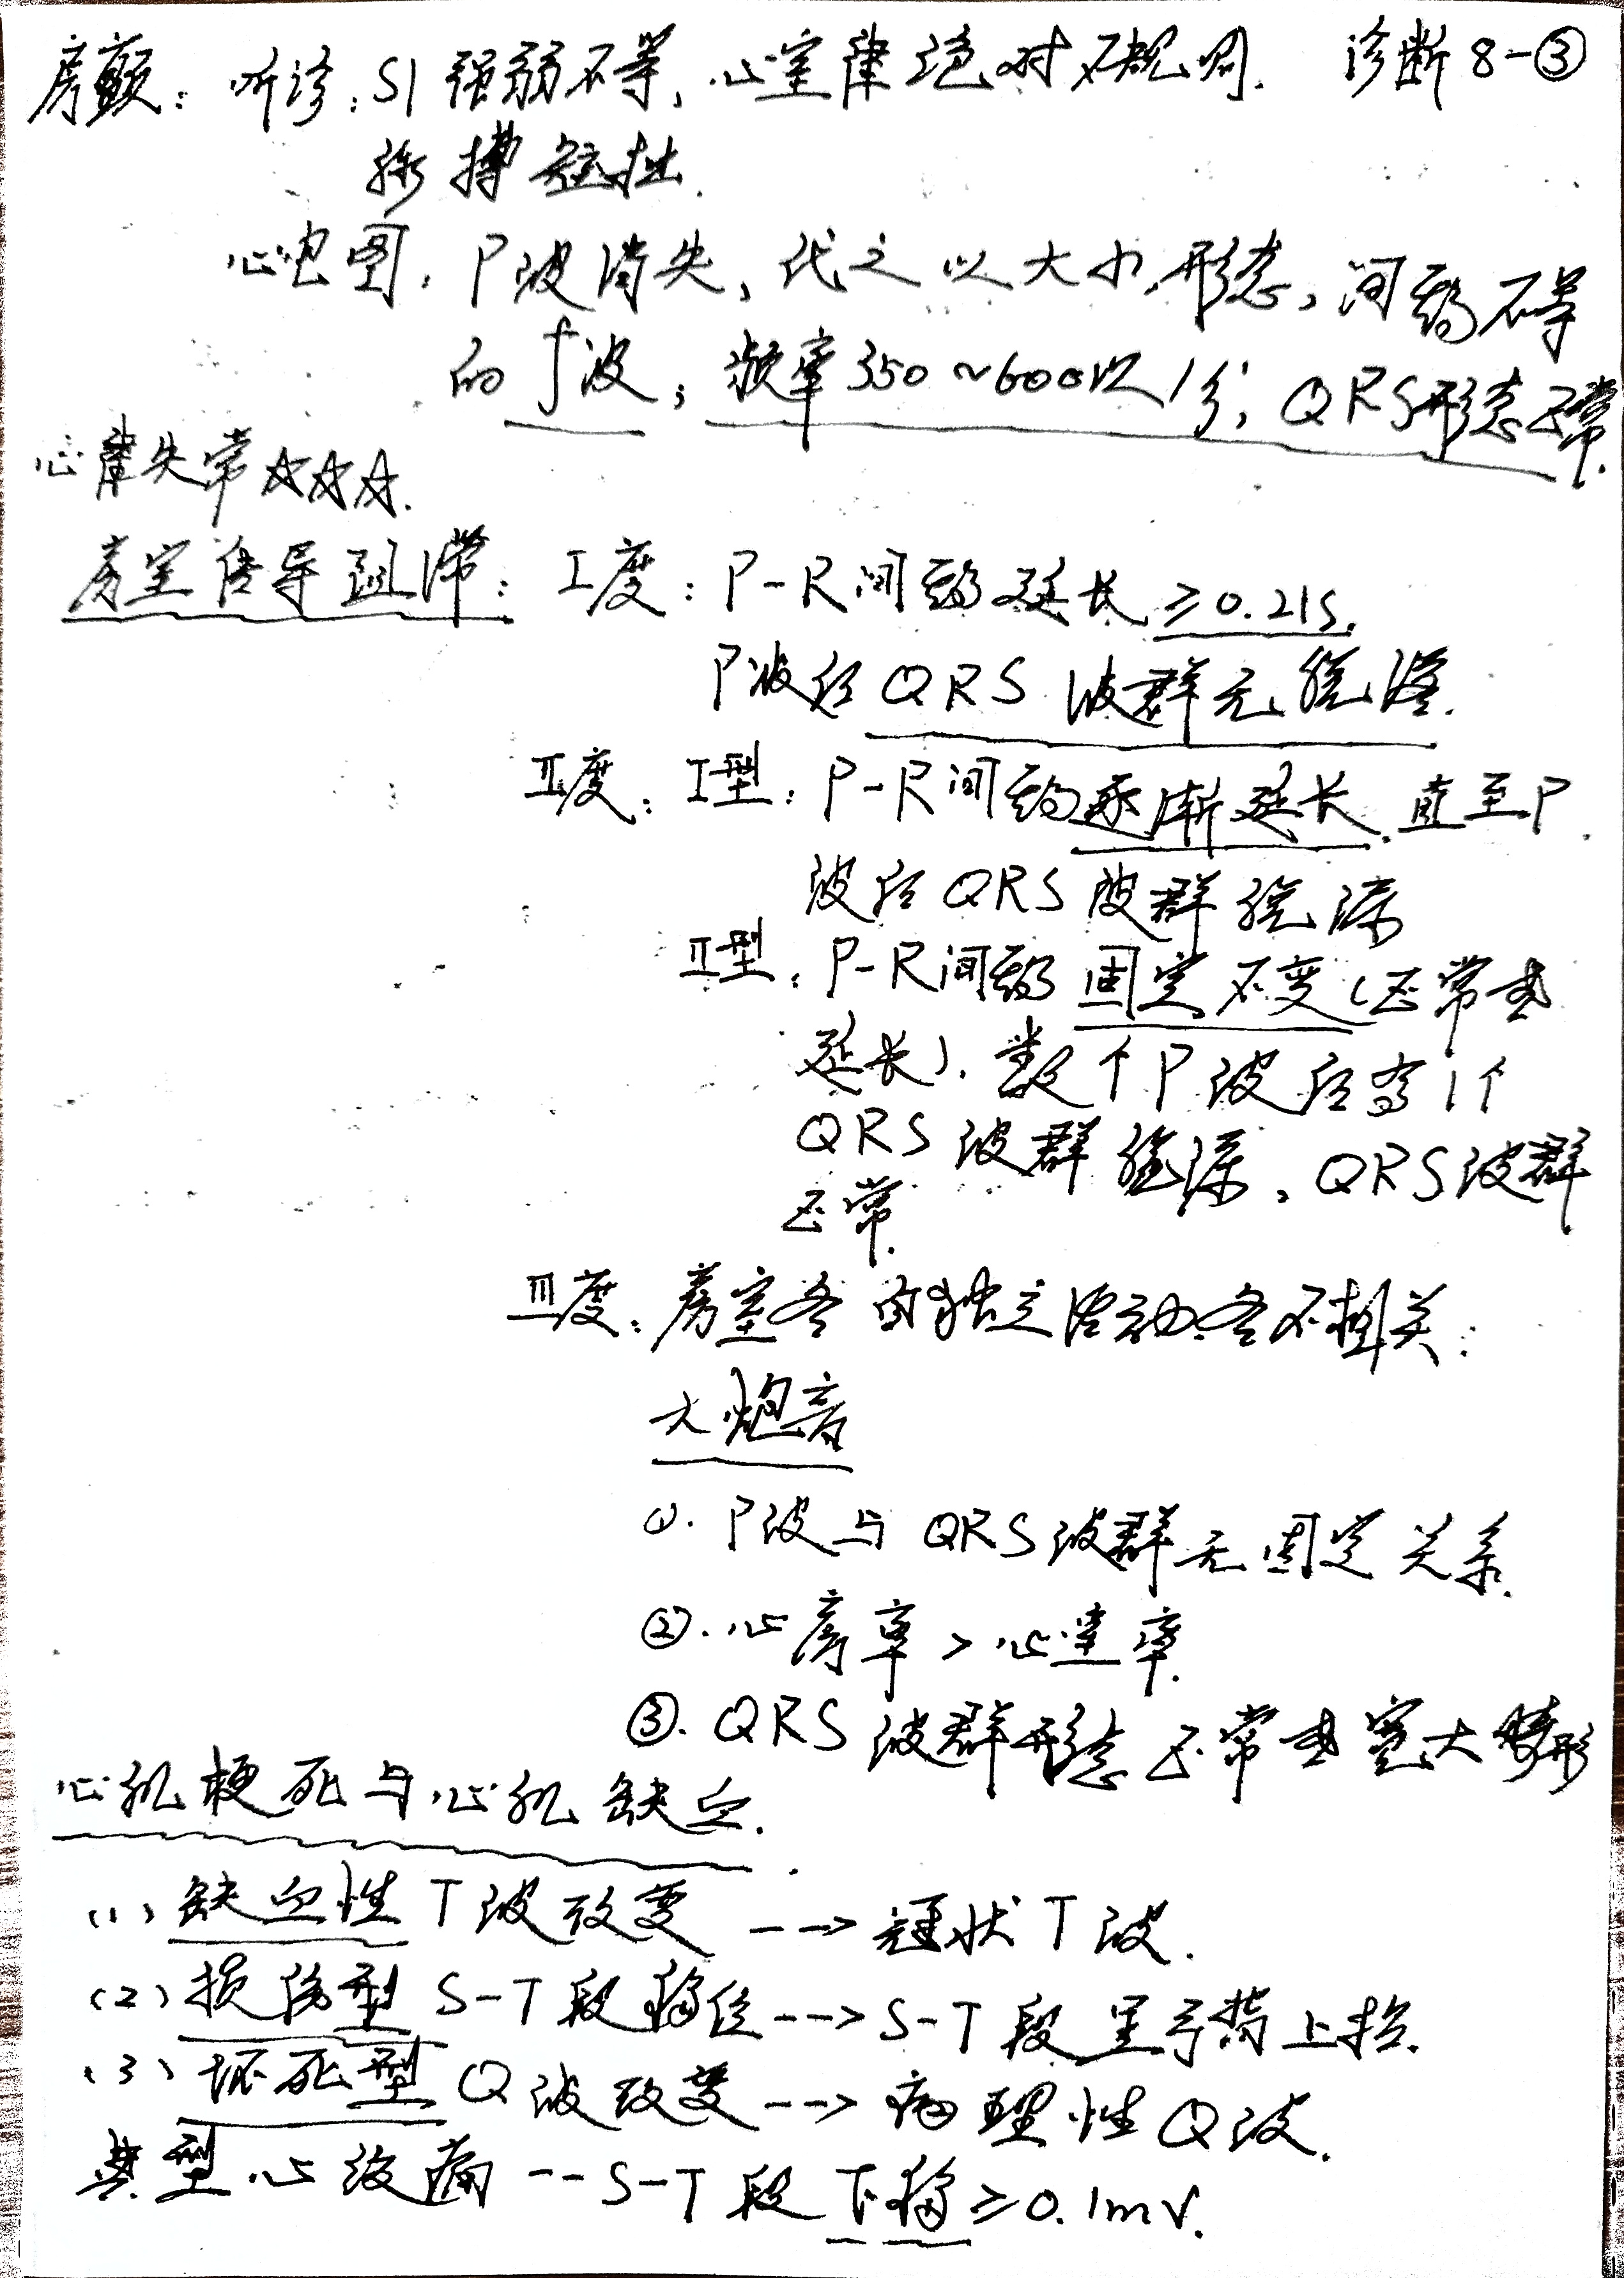 房颤：听诊：S1强弱不等，心室律绝对不规则. 诊断8-③
脉搏短拙.
心电图：P波消失，代之以大小、形态、间隔不等
的f波；频率350~600次/分；QRS形态正常.
心律失常☆☆☆.
房室传导阻滞：I度：P-R间期延长≥0.21s.
P波后QRS波群无脱落.
II度：I型：P-R间期逐渐延长，直至P
波后QRS波群脱漏
II型：P-R间期固定不变（正常或
延长）.数个P波后有1个
QRS波群脱漏，QRS波群
正常.
III度：房室各自独立活动，各不相关：
大炮音
①.P波与QRS波群无固定关系.
②.心房率>心室率.
③.QRS波群形态正常或宽大畸形
心肌梗死与心肌缺血.
(1)缺血性T波改变-->冠状T波.
(2)损伤型S-T段移位-->S-T段呈弓背上抬.
(3)坏死型Q波改变-->病理性Q波.
典型心绞痛--S-T段下移≥0.1mV.